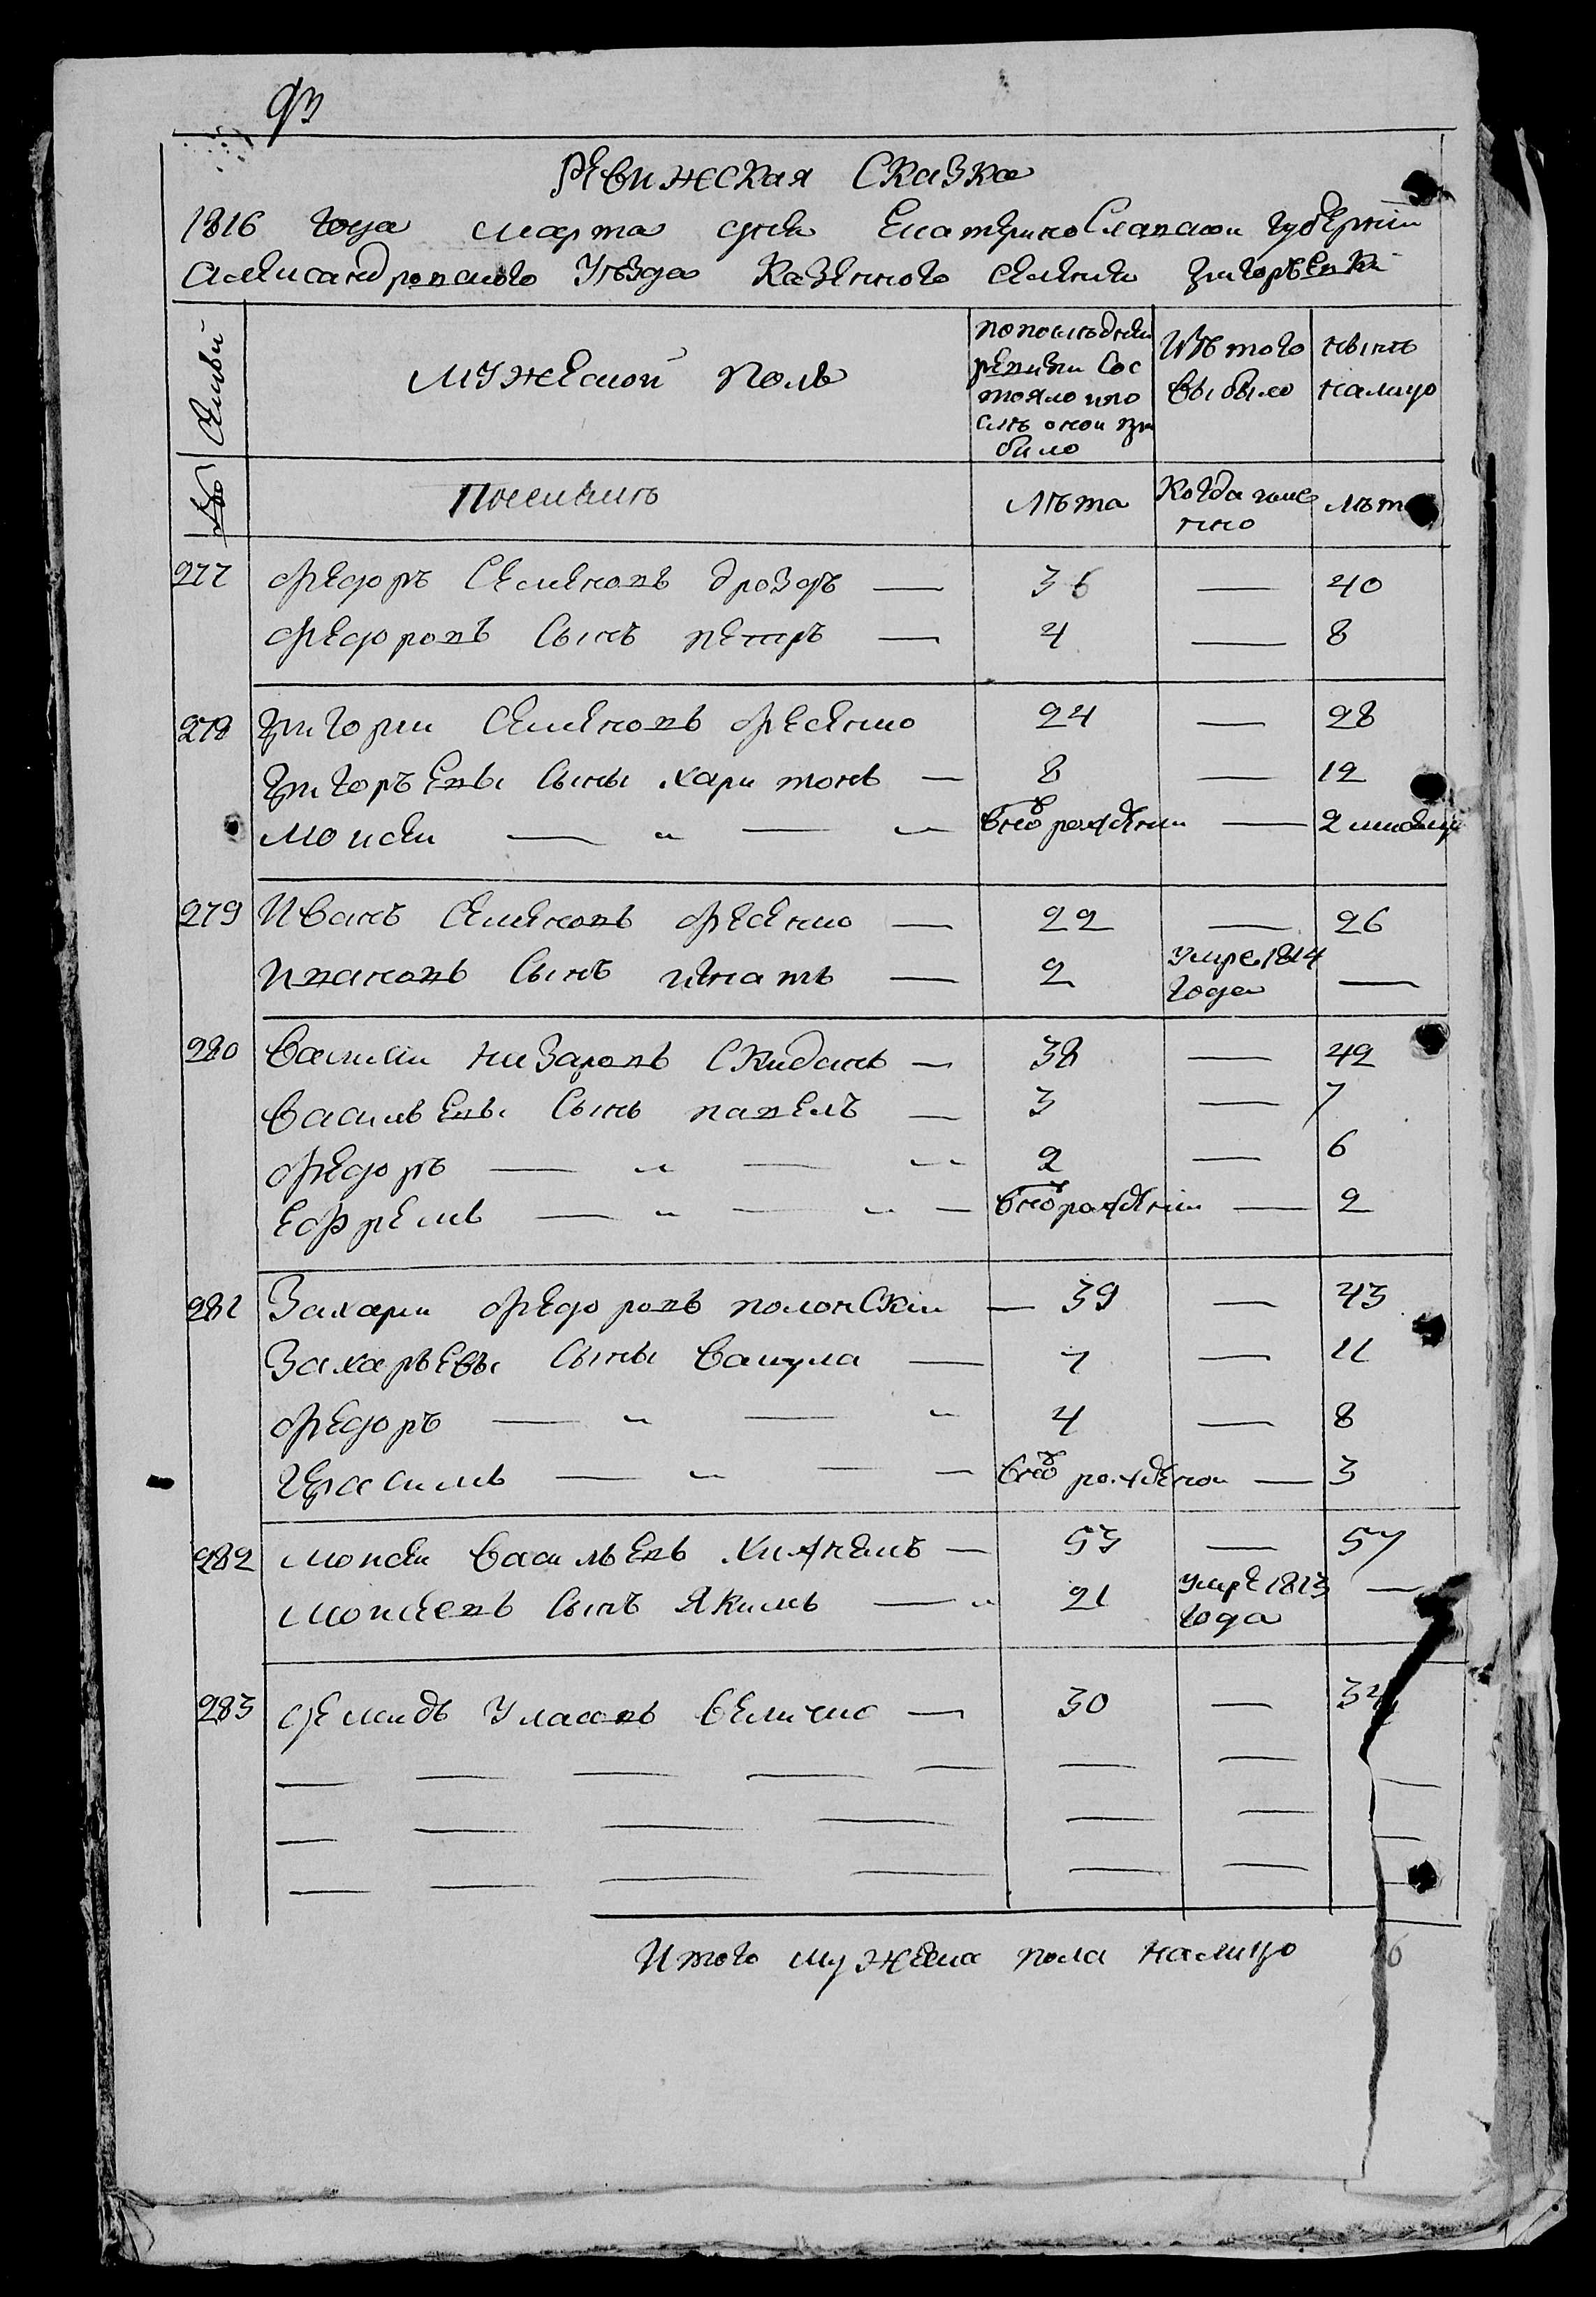 Ревижская Сказка
1816 года марта дня Екатеринославской губернии
Александровского Уезда Казенного селения Григорьевки
Семьи
мужеской поль
попоследней
ревизии Сос
тояло ипо
слѣ оной при
било
Изъ того
выбыло
нынѣ
налицо
№
Поселянъ
Лѣта
Когда имя
нно
лѣта
277 Федоръ Семеновъ дроздъ — 36 — 40
Федоровъ Сынъ петръ — 4 — 8
278 Григории Семеновъ Фесенко 24 — 28
Григорьевы Сыны харитонъ — 8 — 12
Моисеи — „ — „ вновъ рожденни — 2 месяц
279 Иванъ Семеновъ Фесенко — 22 — 26
Ивановъ Сынъ игнатъ — 2 умре 1814 года —
280 Василии низаровъ Скиданъ — 38 — 42
Васильевы Сынъ павелъ — 3 — 7
Федоръ — „ — „ 2 — 6
Ефремъ — „ — „ — вновърожденни — 2
281 Захари Федоровъ полонскии — 39 — 43
Захарьевы Сыны вакула — 7 — 11
Федоръ — „ — „ 4 — 8
Герасимъ — „ — — вновъ рожденои — 3
282 Моисеи Васильевъ Хижнякъ — 53 — 57
Моисеевъ Сынъ Якимъ — „ 21 умре 1813 года —
283 демидъ Уласовъ величко — 30 — 34
Итого мужеска пола налицо 16